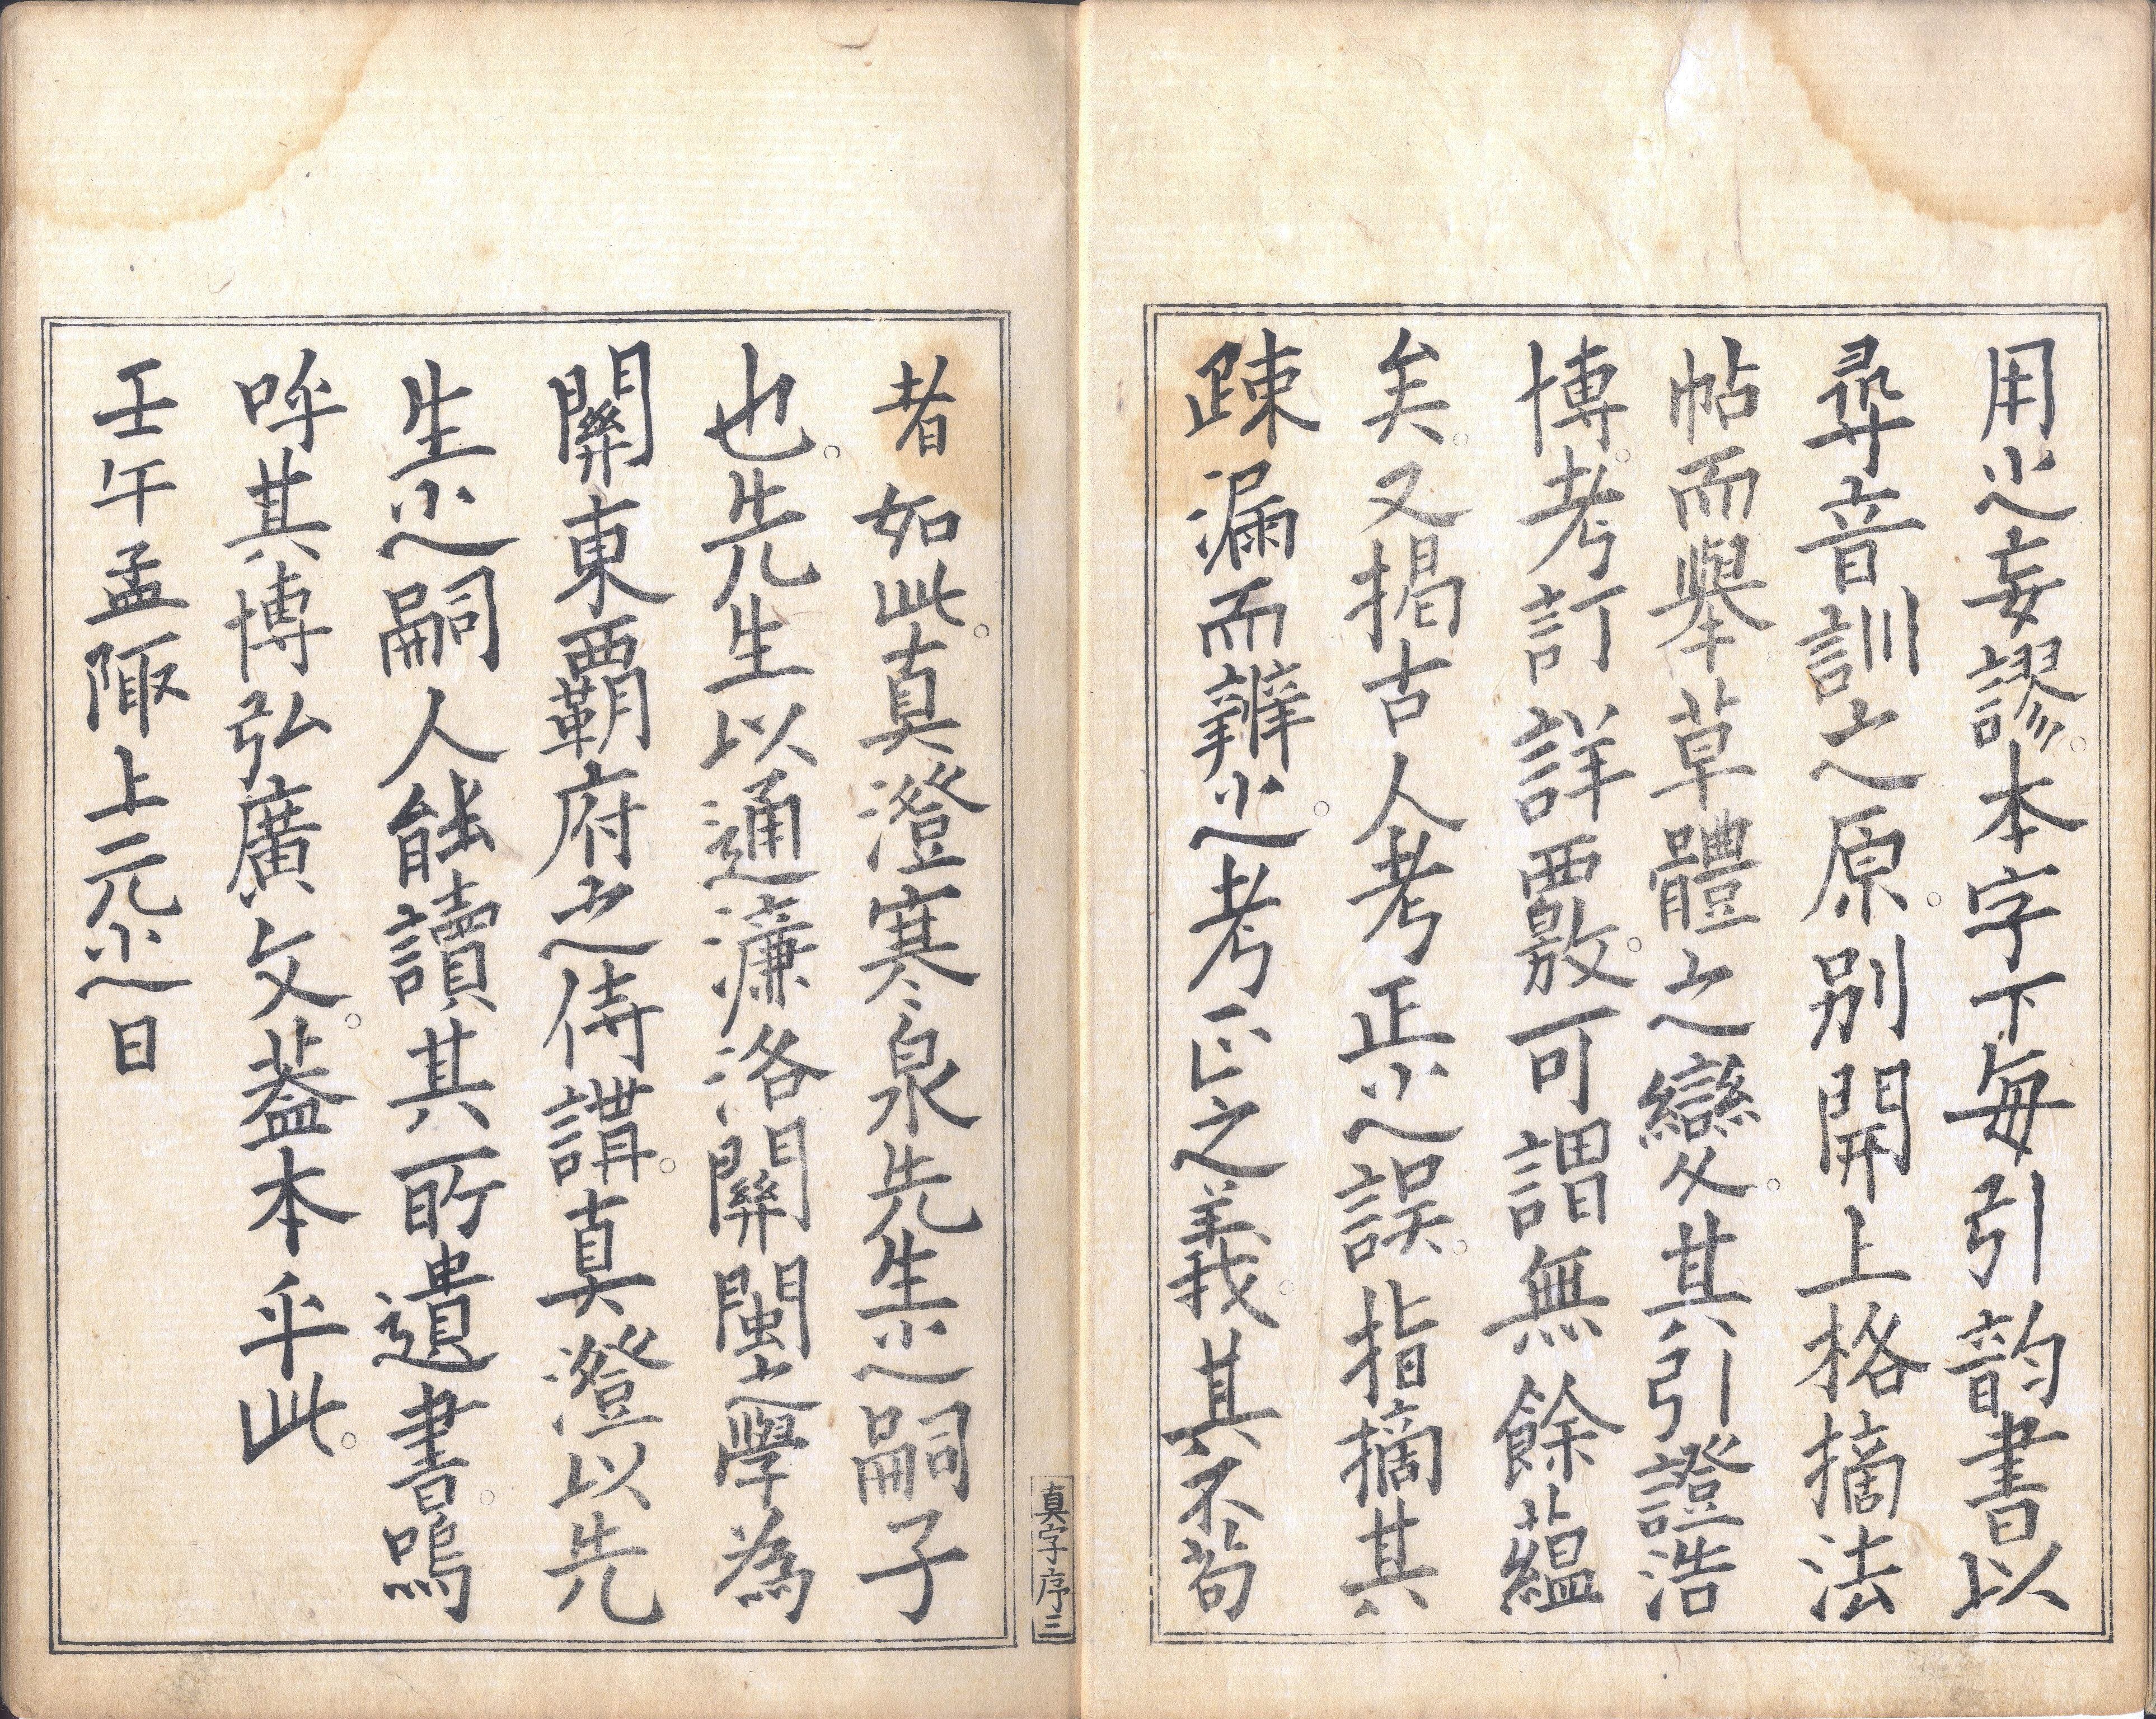 用之妄謬。本字下每引韵書以
尋音訓之原。別開上格摘法
帖而舉草體之變。其引證浩
博。考訂詳覈。可謂無餘蘊
矣。又揭古人考正之誤。指摘其
疎漏而辨之。考正之義。其不苟
者如此。真澄寒泉先生之嗣子
也。先生以通濂洛關閩之學為
關東覇府之侍講。真澄以先
生之嗣人能讀其所遺書。嗚
呼其博弘廣文。葢本乎此。
壬午孟陬上元之日
真字序 三